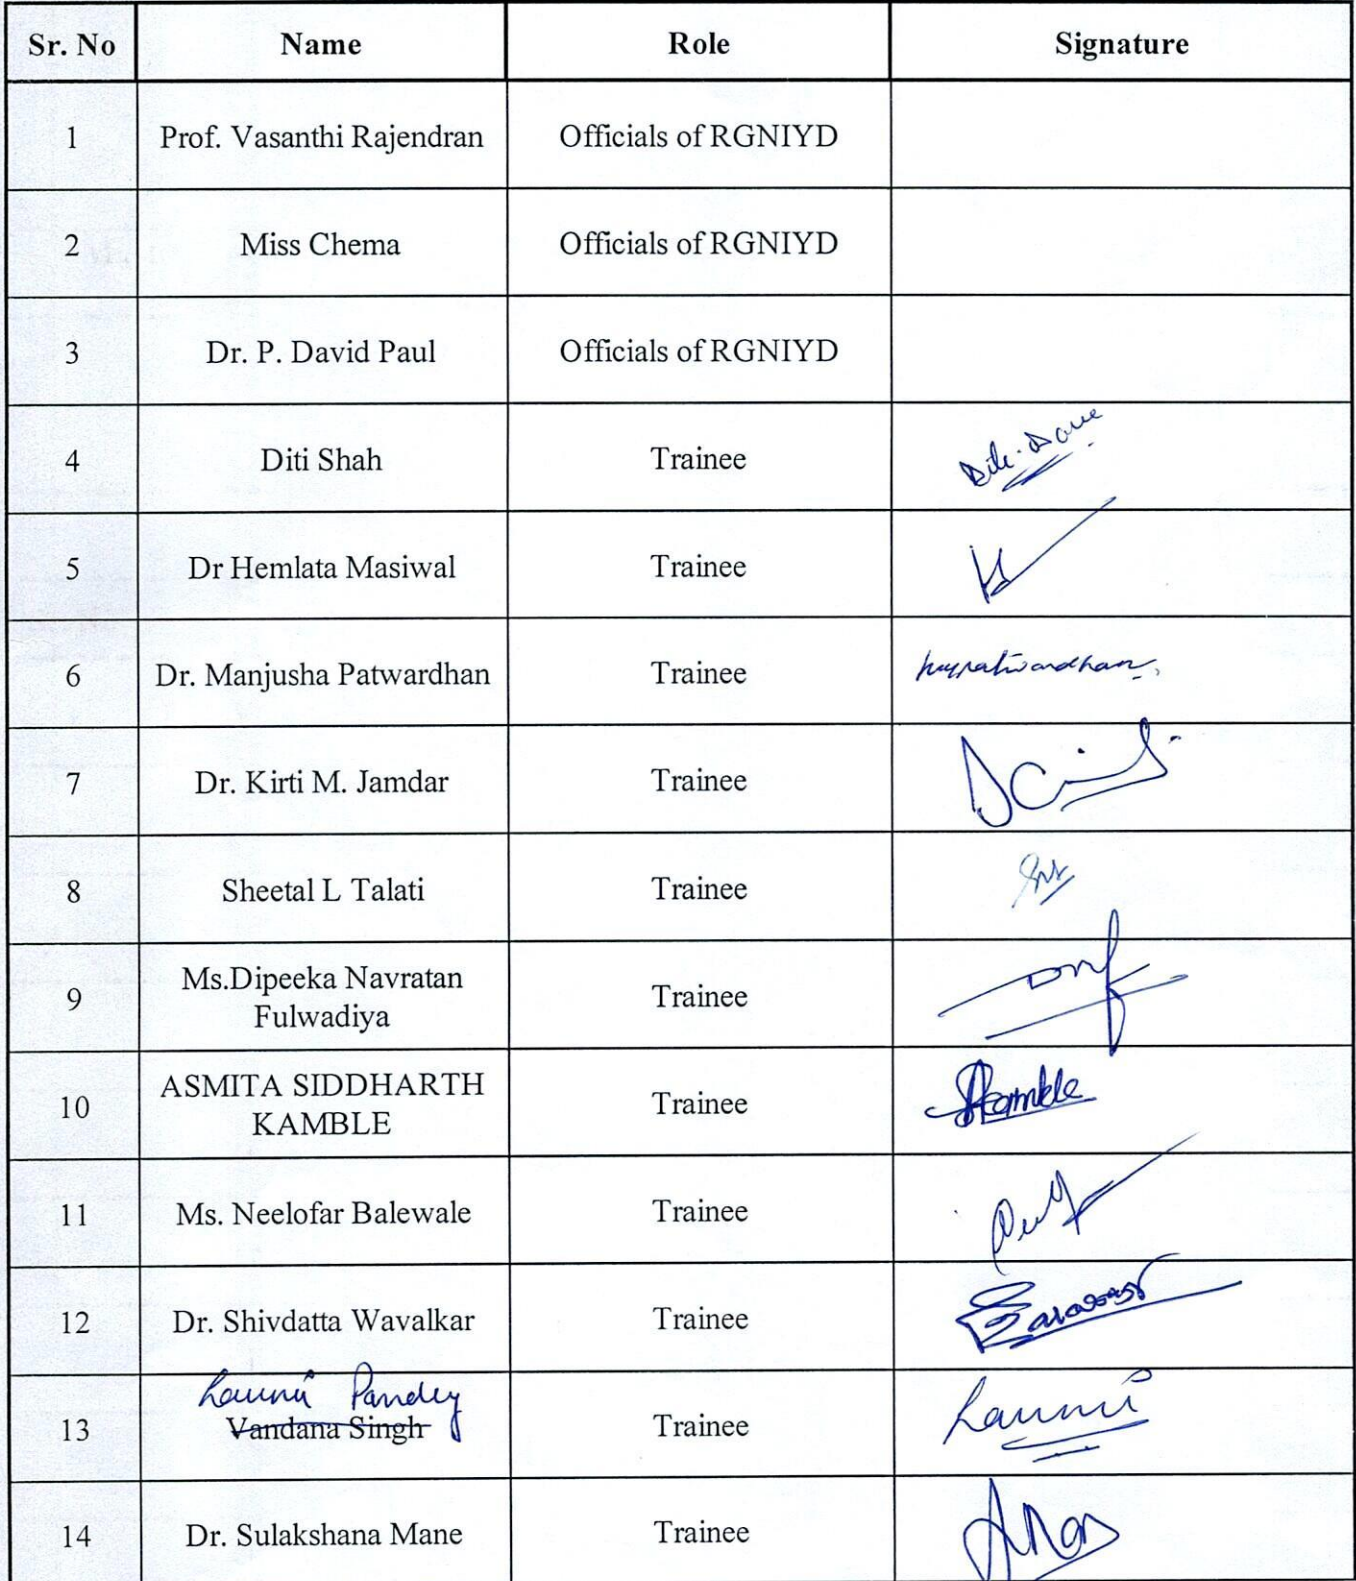 Sr. No Name Role Signature
1 Prof. Vasanthi Rajendran Officials of RGNIYD
2 Miss Chema Officials of RGNIYD
3 Dr. P. David Paul Officials of RGNIYD
4 Diti Shah Trainee
5 Dr Hemlata Masiwal Trainee
6 Dr. Manjusha Patwardhan Trainee
7 Dr. Kirti M. Jamdar Trainee
8 Sheetal L Talati Trainee
9 Ms.Dipeeka Navratan Trainee
Fulwadiya
10 ASMITA SIDDHARTH Trainee Kamble
KAMBLE
11 Ms. Neelofar Balewale Trainee
12 Dr. Shivdatta Wavalkar Trainee
Pandey
13 Vandana Singh Trainee
14 Dr. Sulakshana Mane Trainee